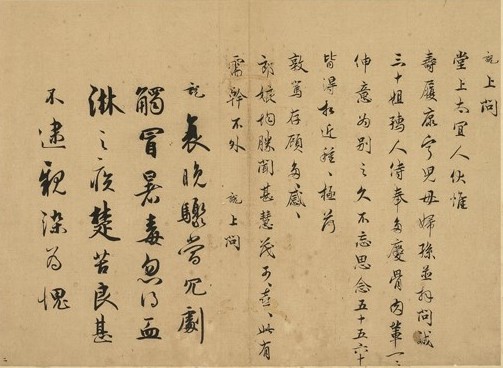 上問
堂上太宜人伏惟
壽履康寧兒母婦孫並拜問
三十姐孺人侍奉多慶骨肉輩一一
伸意為別之久不忘思念五十五六十
皆得 近種種極荷
敦篤存顧多感
郎娘均勝聞甚慧茂可喜此有
需幹不外
上問
衰晚驟當冗劇
觸冒暑毒忽得血
淋之疾楚苦良甚
不逮親染為愧